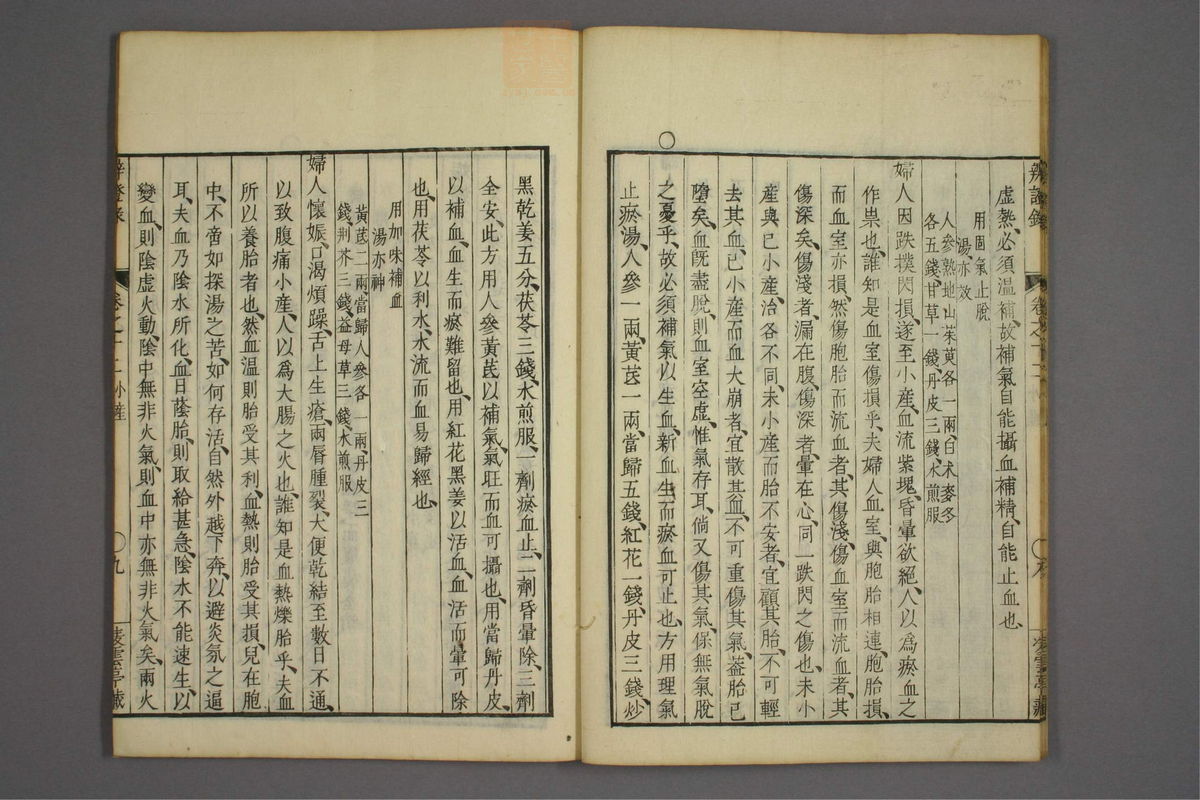 辨證錄 卷之十二
凌雲亭藏
虛熱必須溫補故補氣自能攝血補精自能止血也
用固氣止脫
湯亦效
人參熟地山茱萸各一兩白朮麥冬
各五錢甘草一錢丹皮三錢水煎服
婦人因跌撲閃損遂至小產血流紫塊昏暈欲絕人以為瘀血之
作祟也誰知是血室傷損乎夫婦人血室與胞胎相連胞胎損
而血室亦損然傷胞胎而流血者其傷淺傷血室而流血者其
傷深矣傷淺者漏在腹傷深者暈在心同一跌閃之傷也未小
產與已小產治各不同未小產而胎不安者宜顧其胎不可輕
去其血已小產而血大崩者宜散其瘀不可重傷其氣蓋胎已
墮矣血既盡脫則血室空虛惟氣存耳倘又傷其氣保無氣脫
○
之憂乎故必須補氣以生血新血生而瘀血可止也方用理氣
止瘀湯人參一兩黃芪一兩當歸五錢紅花一錢丹皮三錢炒
黑乾姜五分茯苓三錢水煎服一劑瘀血止二劑昏暈除三劑
全安此方用人參黃芪以補氣氣旺而血可攝也用當歸丹皮
以補血血生而瘀難留也用紅花黑姜以活血血活而暈可除
也用茯苓以利水水流而血易歸經也
用加味補血
湯亦神
黃芪二兩當歸人參各一兩丹皮三
錢荆芥三錢益母草三錢水煎服
婦人懷娠口渴煩躁舌上生瘡兩唇腫裂大便乾結至數日不通
以致腹痛小產人以為大腸之火也誰知是血熱爍胎乎夫血
所以養胎者也然血溫則胎受其利血熱則胎受其損兒在胞
中不啻如探湯之苦如何存活自然外越下奔以避炎氛之逼
耳夫血乃陰水所化血日蔭胎則取給甚急陰水不能速生以
變血則陰虛火動陰中無非火氣則血中亦無非火氣矣兩火
辨證錄 卷之十二 小產 ○九
凌雲亭藏